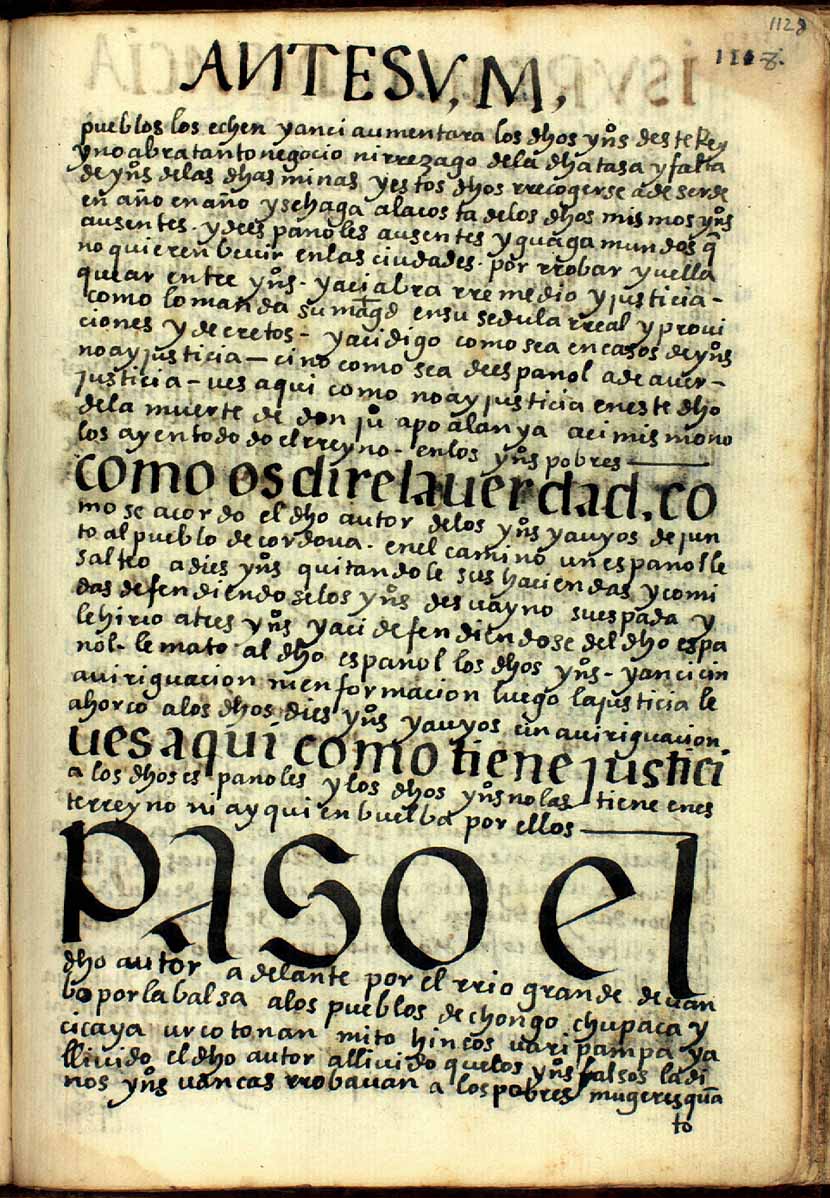 1128
1118.
ANTESV, M,
pueblos los echen y anci aumentara los dhos yns deste Rey
y no abra tanto negocio ni rrezago de la dha tasa y falta
de yns de las dhas minas y estos dhos rrecogerse a de ser de
en año en año y se haga a la costa de los dhos mismos yns
ausentes. y de espanoles ausentes y guagamundos q̄
no quieren beuir en las ciudades. por rrobar y uella
quear entre yns - y aci abra rremedio y justicia -
como lo manda su magd en su sedula rreal y proui
ciones y decretos - y aci digo como sea en casos de yns
no ay justicia — cino como sea de espanol a de auer -
justicia - ues aqui como no ay justicia en este dho
de la muerte de don ju apo alanya aci mismo no
los ay en todo do el rreyno - en los yns pobres —
como os dire la uerdad, co
mo se acordo el dho autor de los yns yauyos de jun
to al pueblo de cordoua. en el camino un espanol le
salteo a dies yns quitandole sus haciendas y comi
das defendiendoselos yns desuayno su espada y
le hirio a tres yns y aci defendiendose del dho espa
nol - le mato al dho espanol los dhos yns - y anci cin
auiriguacion ni enformacion luego la justicia le
ahorco a los dhos dies yns yauyos cin auiriguacion
ues aqui como tiene justici
a los dhos espanoles y los dhos yns no las tiene en es
te rreyno ni ay quien buelba por ellos —
PASO el
dho autor adelante por el rrio grande de uan
bo por la balsa a los pueblos de chongo chupaca y
cicaya urcotonan mito hincos uaripampa ya
lliuido el dho autor alliuido que los yns falsos ladi
nos yns uancas rrobauan a los pobres mugeres qua
to